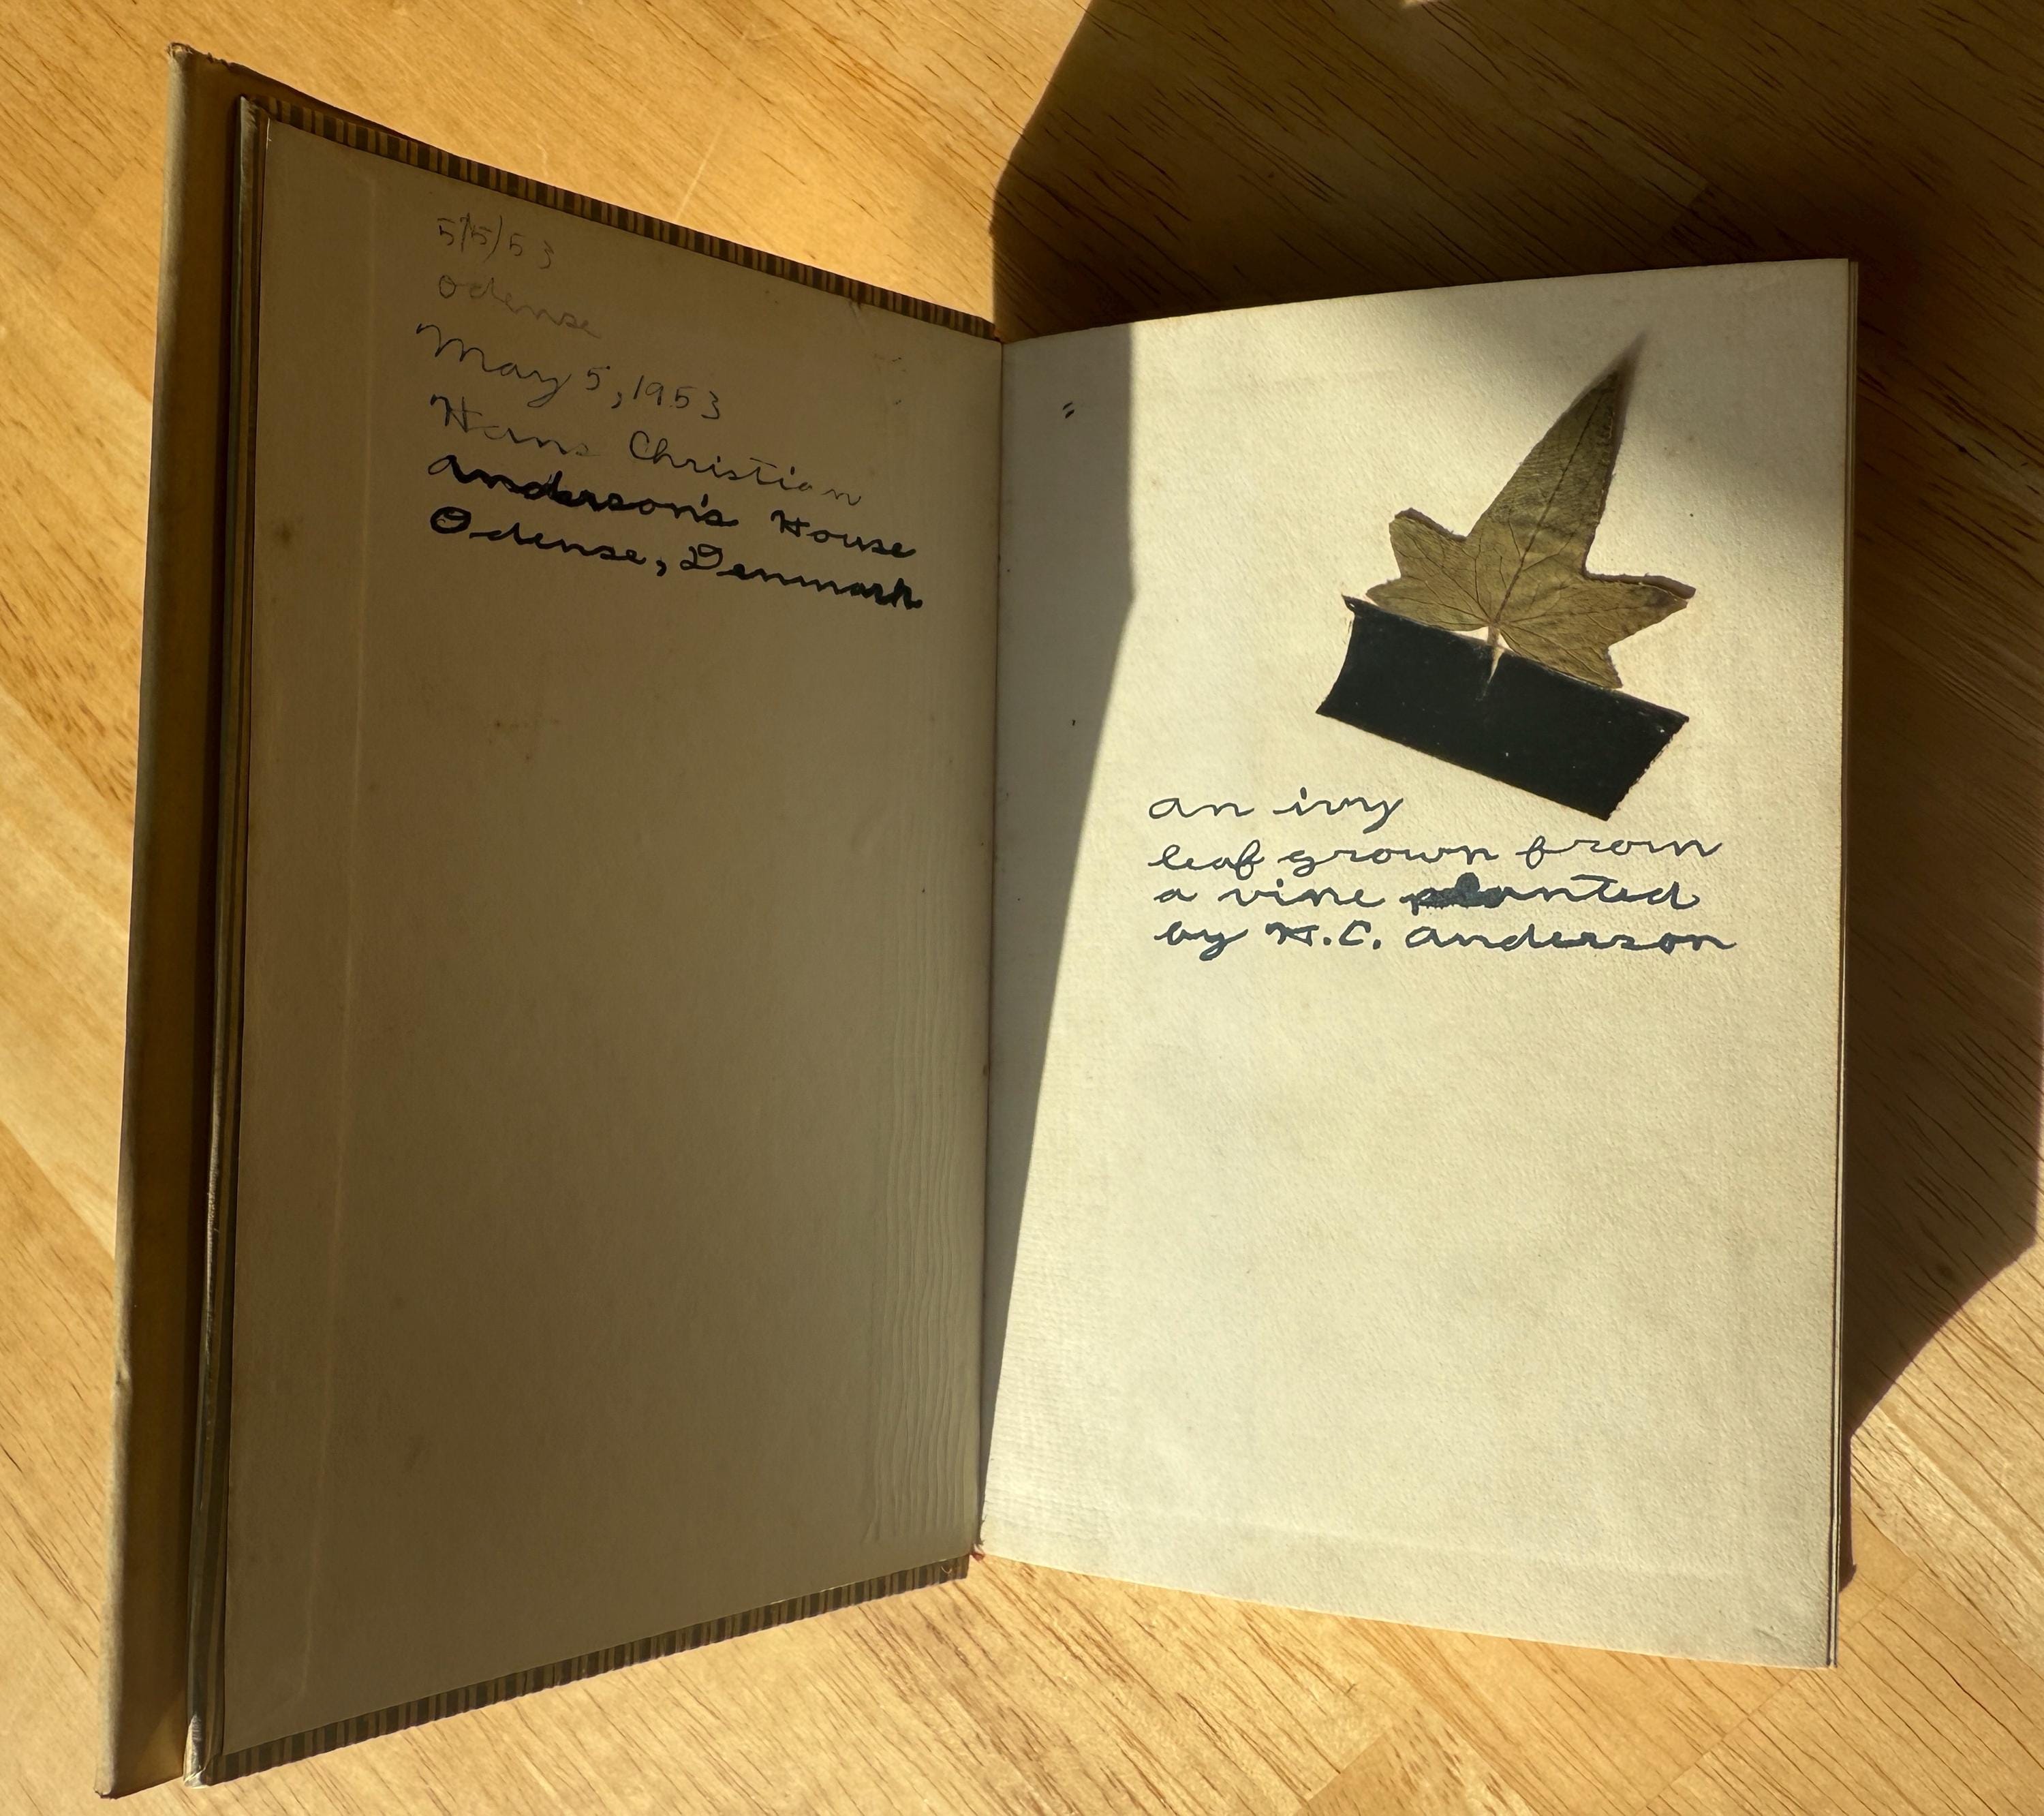 5/5/53
Odense
May 5, 1953
Hans Christian
Anderson's House
Odense, Denmark
an ivy
leaf grown from
a vine planted
by H.C. Anderson